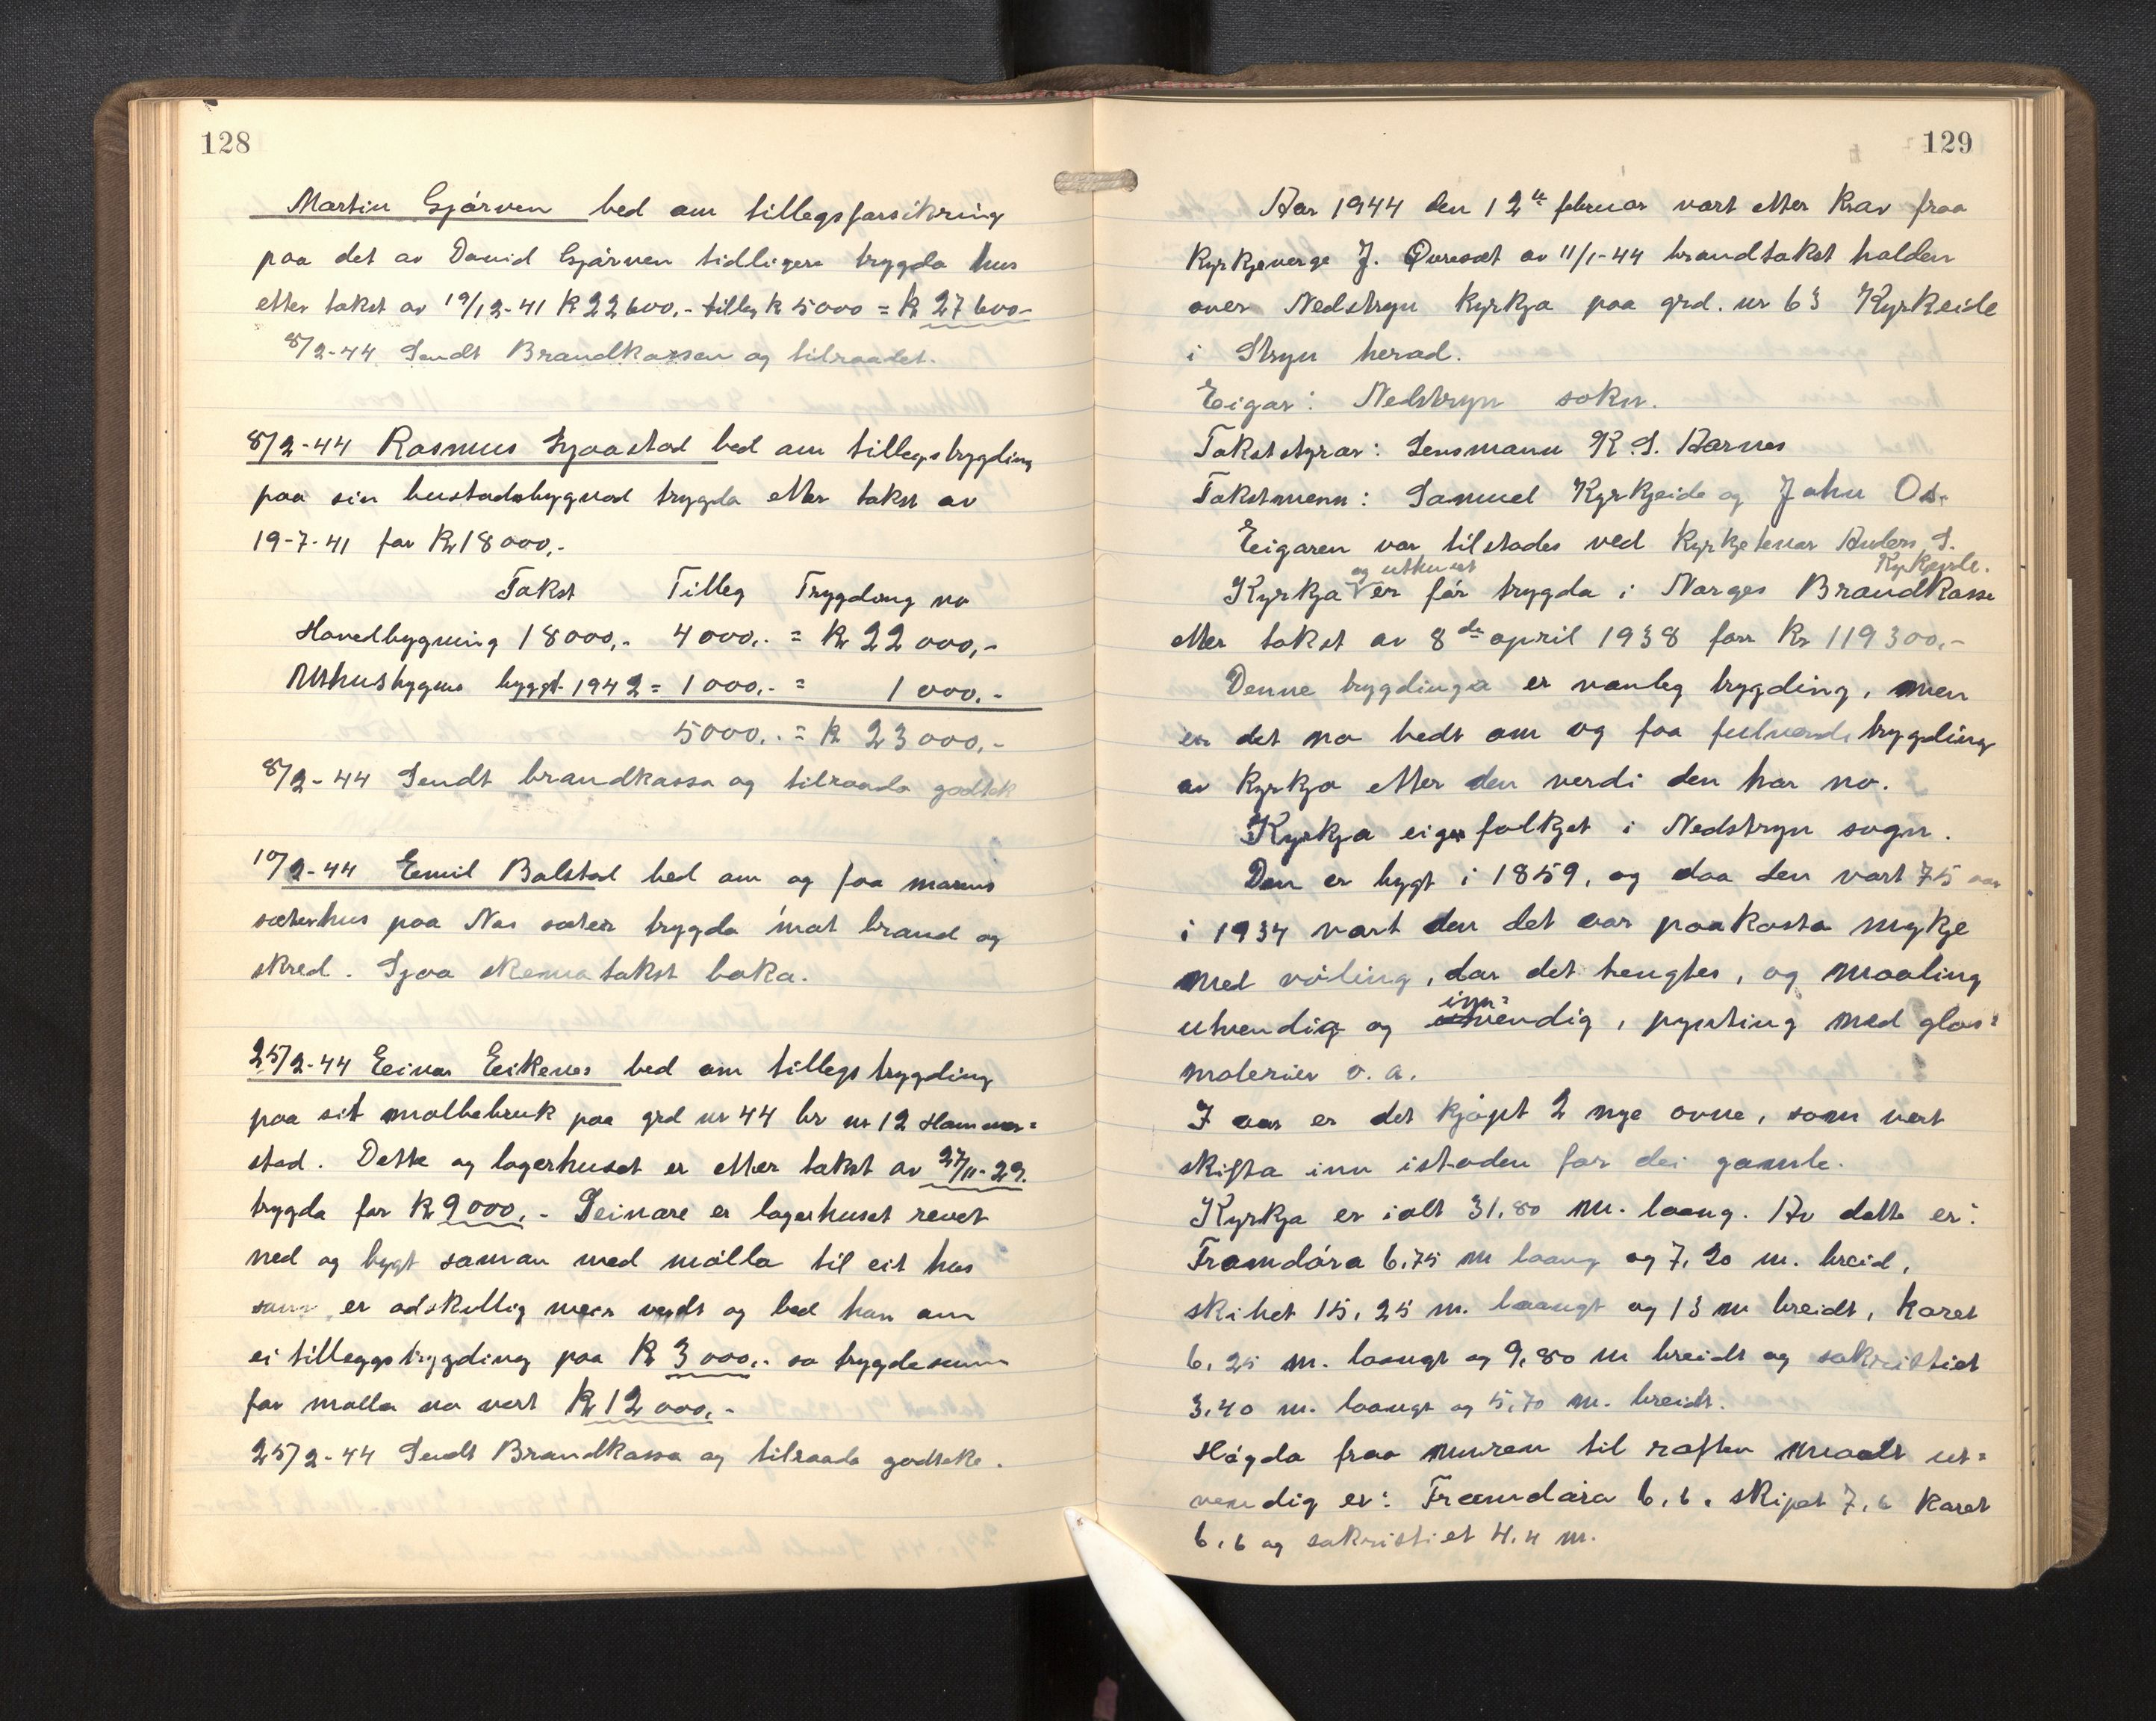 128
Martin Gjörven bed om tillegsforsikring
paa det av David Gjörven tidligere trygda hus
etter takst av 19/12-41 k 22600,- tilleg k 5000 = k 27600-
8/2-44 Sendt Brandkassen og tilraadet.
8/2-44 Rasmus Sjaastad bed om tillegstrygding
paa sin bustadsbygnad trygda etter takst av
19-7-41 for Kr 18000,-
Takst Tilleg Trygding no
Hovedbygning 18000,- 4000,- = Kr 22000,-
Uthusbygns byggt 1942 = 1000,- = 1000,-
5000,- = k 23000,-
8/2-44 Sendt brandkassa og tilraada godtek
10/2-44 Emil Bolstad bed om og faa
sæterhus paa Nes sæter trygda mot brand og
skred. Sjaa skema takst boka.
25/2-44 Einar Eikenes bed om tillegs trygding
paa sit mølbebruk paa grd nr 44 br nr 12 Hammer=
stad. Dette og lagerhuset er etter takst av 27/11-29.
trygda for k 9000,- Seinare er lagerhuset revet
ned og bygt saman med mölla til eit hus
som er adskillig meir verdt og bed han om
ei tilleggstrygding paa k 3000,- so trygdesum
for mölla no vert k 12000,-
25/2-44 Sendt Brandkassa og tilraada godteke.
129
Aar 1944 den 12te februar vart etter krav fraa
kyrkjeverge J. Øvresæt av 11/1-44 brandtakst halden
over Nedstryn kyrkja paa grd. nr 63 Kyrkeide
i Stryn herad.
Eigar: Nedstryn sokn.
Takststyrar: Lensmann K. S. Aarnes
Takstmenn: Samuel Kyrkjeide og John Os.
Eigaren var tilstades ved kyrkjetenar Anders S.
Kyrkjeide.
og uthuset
Kyrkja er för trygda i Norges Brandkasse
etter takst av 8de april 1938 for Kr 119300,-
Denne trygdinga er vanleg trygding, men
er det no bedt om og faa fullverdi trygding
av kyrkja etter den verdi den har no.
Kyrkja eiges folkjet i Nedstryn sogn.
Den er bygt i 1859, og daa den vart 75 aar
i 1934 vart den det aar paakosta mykje
med völing, dar det trengtes, og maaling
inn=
utvendig og utvendig, pynting med glas=
malerier o. a.
I aar er det kjöpt 2 nye ovne, som vert
skifta inn istaden for dei gamle.
Kyrkja er ialt 31,80 m. laang. Av dette er:
Framdöra 6,75 m laang og 7,20 m. breid,
skibet 15,25 m. laangt og 13 m breidt, koret
6,25 m. laangt og 9,80 m breidt og sakristiet
3,40 m. laangt og 5,70 m. breidt.
Högda fraa muren til raften maalt ut=
vendig er: Framdöra 6,6. skipet 7,6 koret
6,6 og sakristiet 4,4 m.